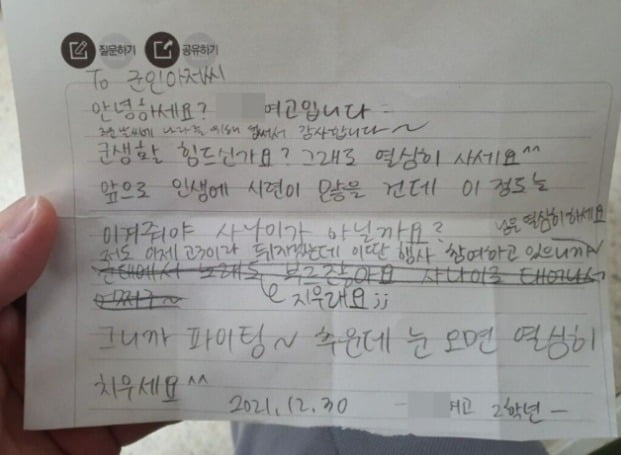 질문하기 공유하기
To 군인아저씨
안녕하세요? 여고입니다
추운 날씨에 나라를 위해 감사합니다~
군생활 힘드신가요? 그래도 열심히 사세요^^
앞으로 인생에 시련이 많을 건데 이 정도는
이겨줘야 사나이가 아닐까요?
나도 이제 고3이라 뒤지겠는데 이딴 행사 참여하고 있으니까
님은 열심히 하세요
군대에서 노래도 부르잖아요 사나이로 태어나서
어쩌구~
지우래요;;
그니까 파이팅~ 추운데 눈 오면 열심히
치우세요^^
2021.12.30 - 여고 2학년 -